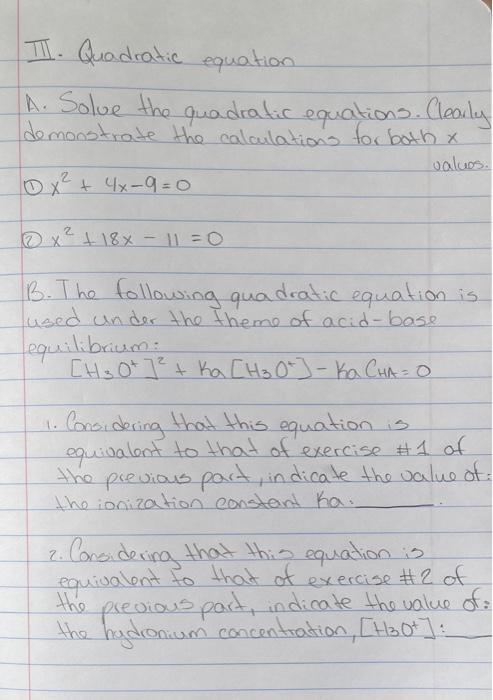 III. Quadratic equation
A. Solve the quadratic equations. Clearly
demonstrate the calculations for both x
values.
① x² + 4x - 9 = 0
② x² + 18x - 11 = 0
B. The following quadratic equation is
used under the theme of acid-base
equilibrium:
[H3O⁺]² + Ka [H3O⁺] - Ka CHA = 0
1. Considering that this equation is
equivalent to that of exercise #1 of
the previous part, indicate the value of:
the ionization constant Ka: ________.
2. Considering that this equation is
equivalent to that of exercise #2 of
the previous part, indicate the value of:
the hydronium concentration, [H3O⁺]: ____